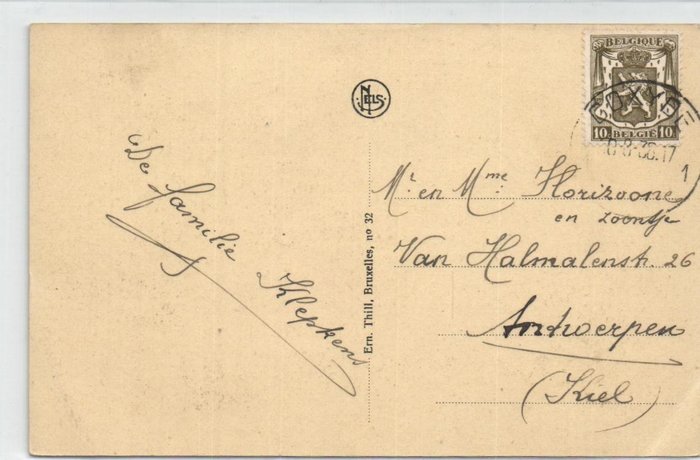 BELGIQUE
10 BELGIË 10
COXYDE
8-36.17
1
NELS
De familie
Klepkens
Ern. Thill, Bruxelles, no 32
Mr en Mme Horizoone
en zoontje
Van Halmalenstr. 26
Antwerpen
(Kiel)